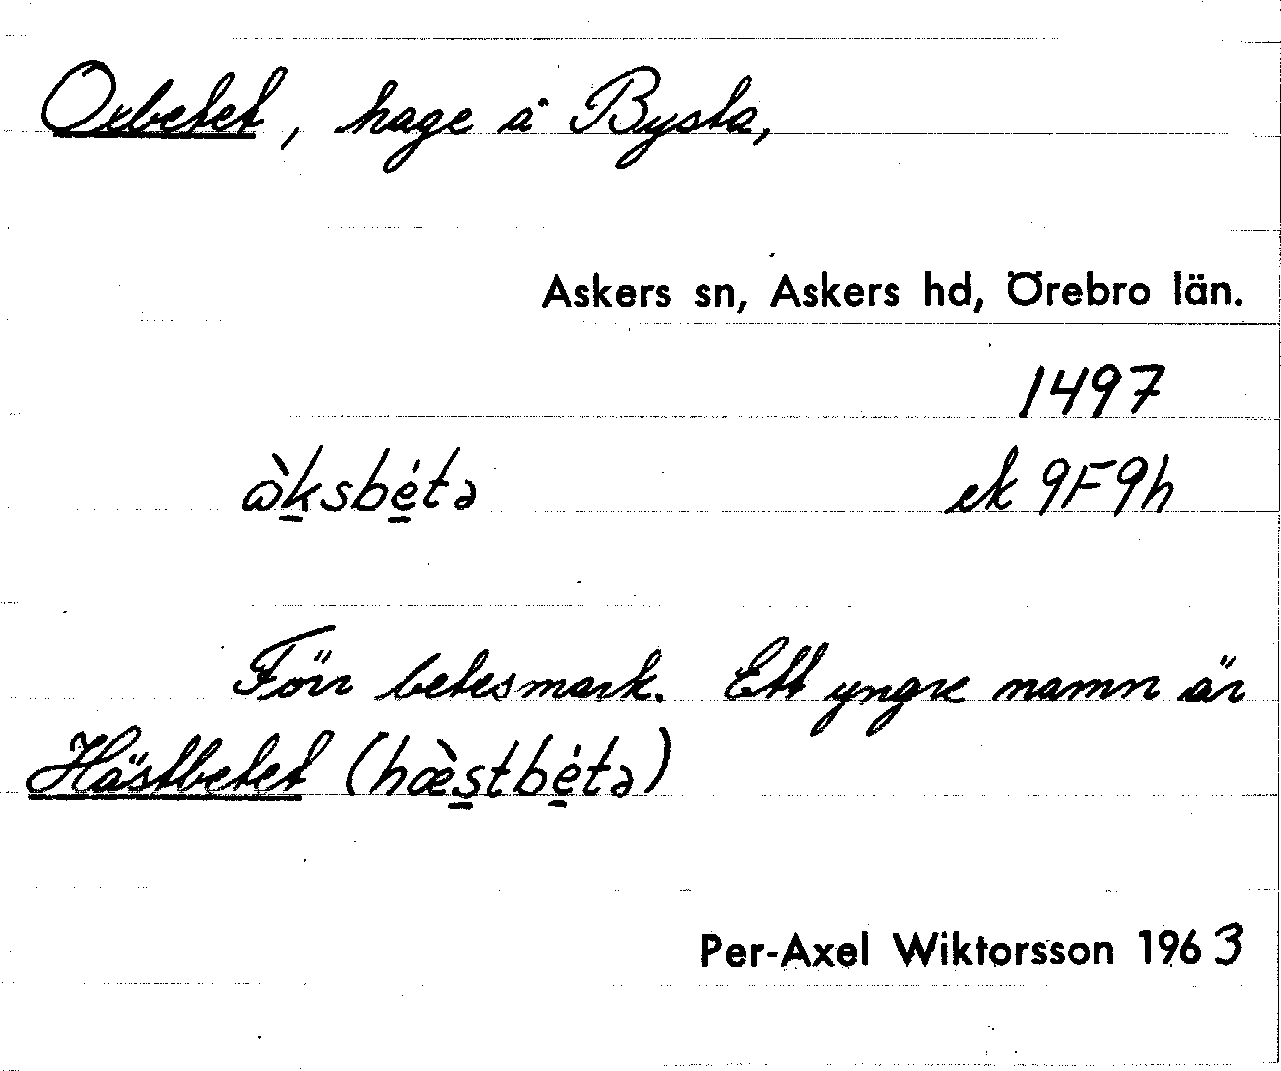 Oxbetet, hage å Bysta,
Askers sn, Askers hd, Örebro län.
1497
ὼk̲sbé̲tə ek 9F9h
Förr betesmark. Ett yngre namn är
Hästbetet (hæ̀s̲tbé̲tə)
Per-Axel Wiktorsson 1963